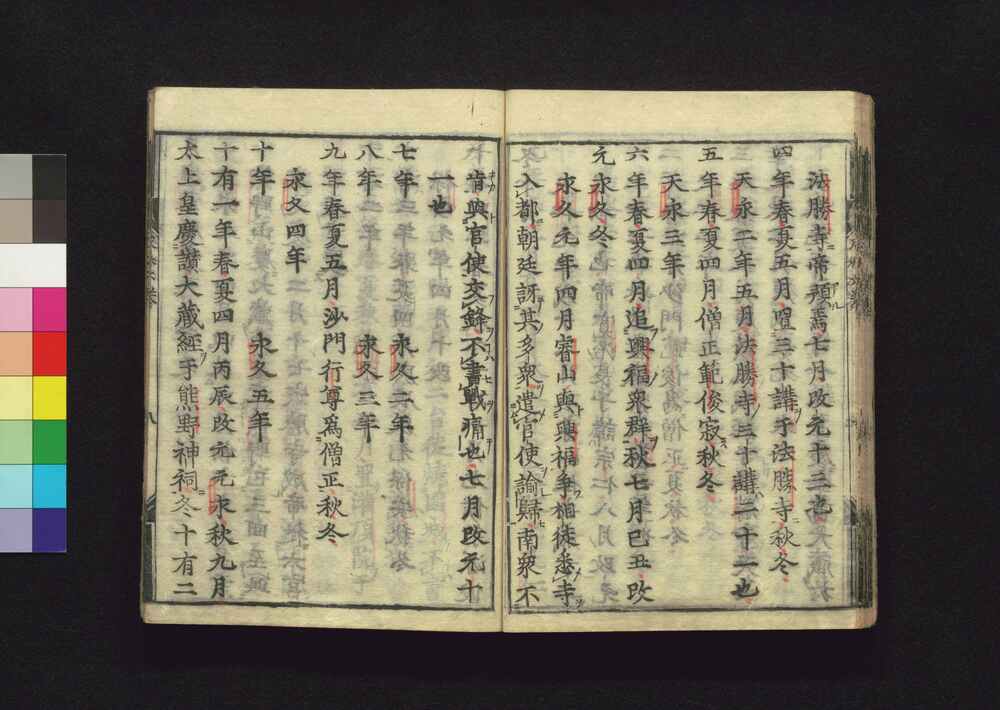 法勝寺帝預焉七月改元十三也
四年春夏五月
三十講于法勝寺秋冬
天永二年五月法勝寺三十講二十一也
五年春夏四月僧正範俊寂秋冬
天永三年
六年春夏四月追興福衆群秋七月己丑改
元永久冬
永久元年四月睿山與興福争相徒悉寺
入都朝廷訝其多衆遣官使諭歸南衆不
肯與官使交鋒不書戰痛也七月改元十
一也
七年
永久二年
八年
永久三年
九年春夏五月沙門行尊爲僧正秋冬
永久四年
十年
永久五年
十有一年春夏四月丙辰改元元永秋九月
太上皇慶讃大藏經于熊野神祠冬十有二
八